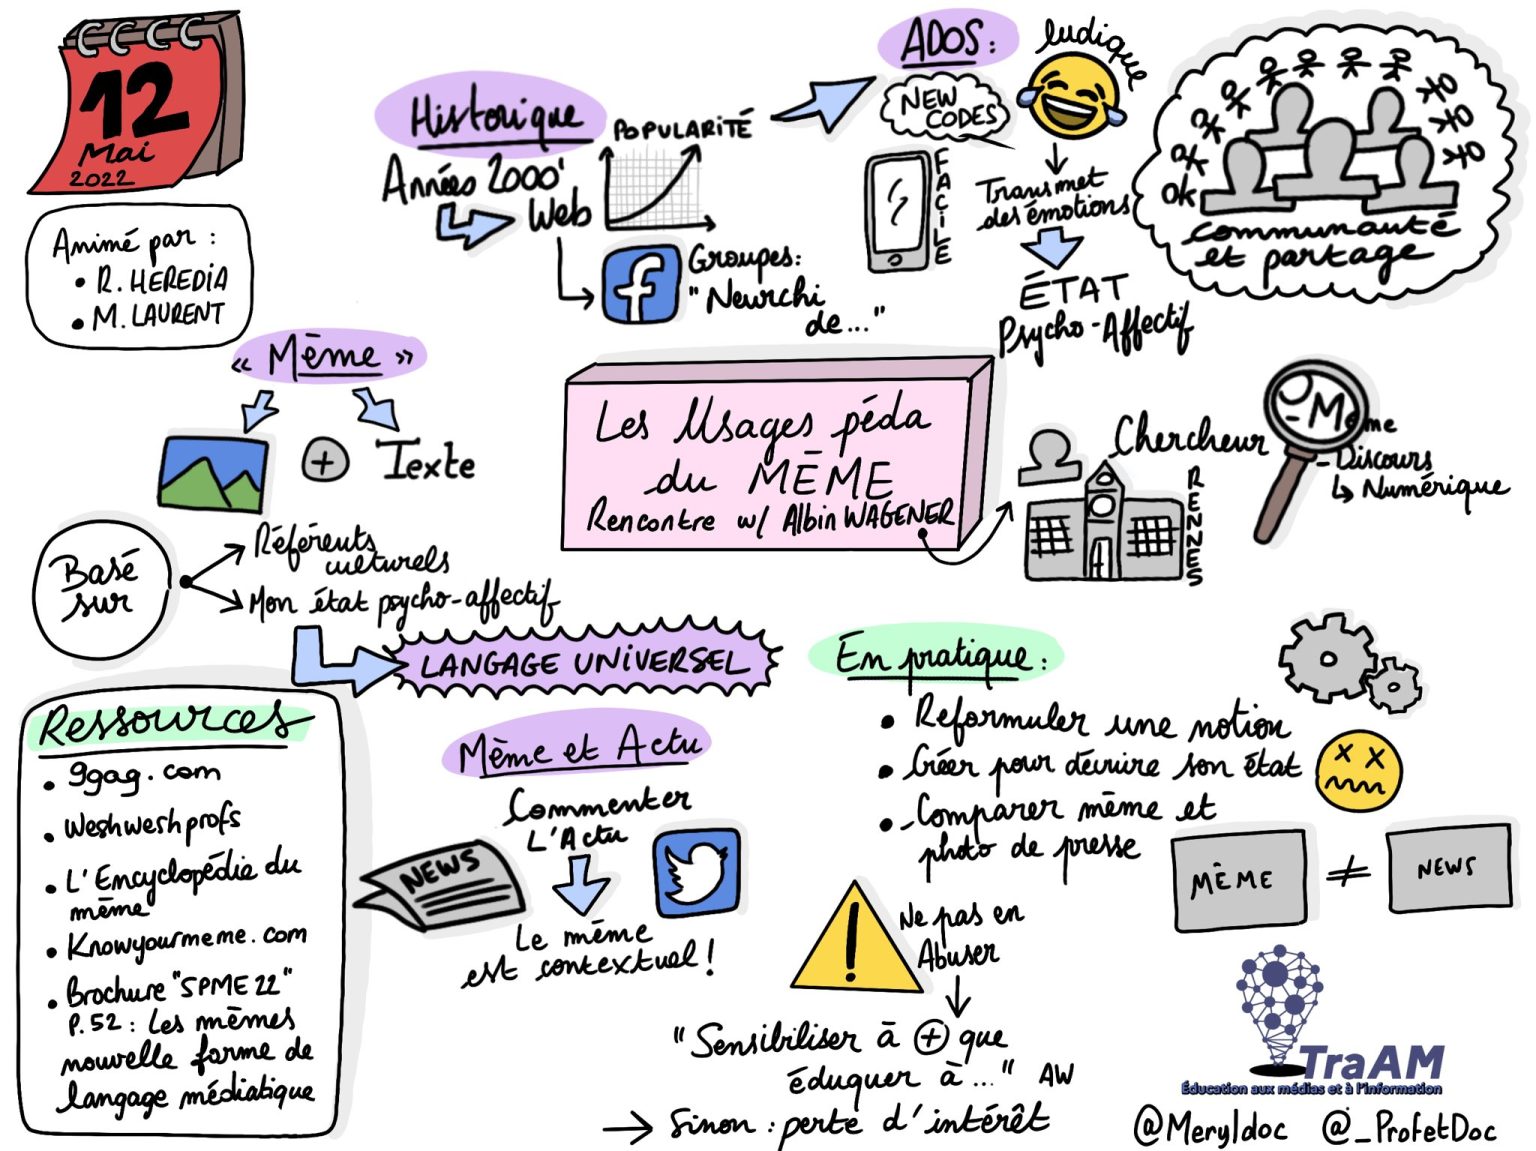 12
Mai
2022
Animé par :
• R. HEREDIA
• M. LAURENT
Historique
Années 2000'
Web
POPULARITÉ
Groupes:
"Neurchi
de..."
ADOS:
NEW
CODES
FACILE
ludique
Transmet
des émotions
ÉTAT
Psycho-Affectif
ok
communauté
et partage
« Mème »
+ Texte
Basé
sur
Référents
culturels
Mon état psycho-affectif
LANGAGE UNIVERSEL
Les Usages péda
du MÈME
Rencontre w/ Albin WAGENER
Chercheur
RENNES
- Meme
- Discours
↳ Numérique
Ressources
• 9gag.com
• Weshweshprofs
• L'Encyclopédie du
même
• Knowyourmeme.com
• Brochure "SPME 22"
P.52 : Les mèmes
nouvelle forme de
langage médiatique
Mème et Actu
Commenter
L'Actu
NEWS
Le mème
est contextuel !
En pratique :
• Reformuler une notion
• Créer pour décrire son état
• - Comparer mème et
photo de presse
MÈME ≠ NEWS
!
Ne pas en
Abuser
"Sensibiliser à + que
éduquer à..." AW
→ Sinon : perte d'intérêt
TraAM
Éducation aux médias et à l'information
@Meryldoc @_ProfetDoc